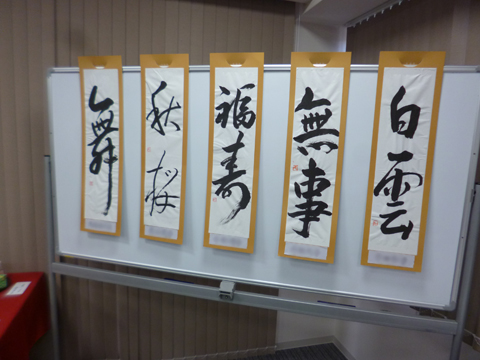 白雲
無事
福寿
秋桜
舞